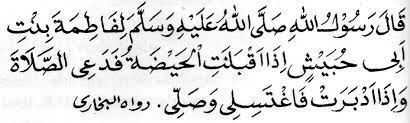 قَالَ رَسُوْلُ اللهِ صَلَّى اللهُ عَلَيْهِ وَسَلَّمَ لِفَاطِمَةَ بِنْتِ
اَبِى حُبَيْشٍ اِذَا اَقْبَلَتِ الْحَيْضَةُ فَدَعِى الصَّلَاةَ
وَاِذَا اَدْبَرَتْ فَاغْتَسِلِى وَصَلِّى. رواه البخارى